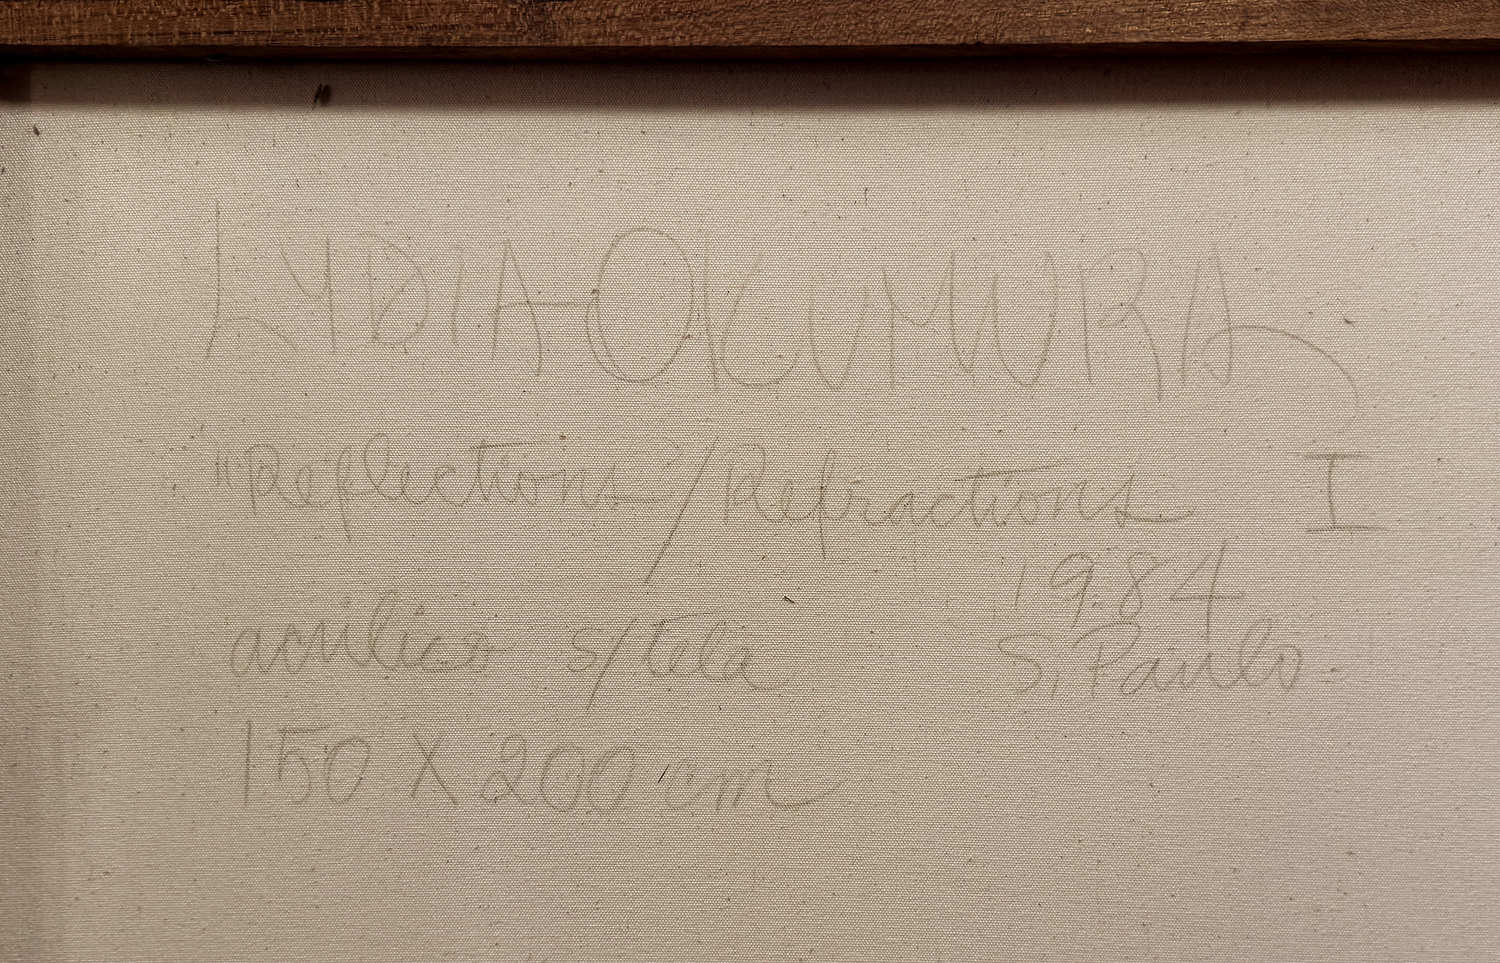 LYDIA OKUMURA
"Reflections/Refractions I
1984
acrilico s/tela S. Paulo
150 X 200 cm